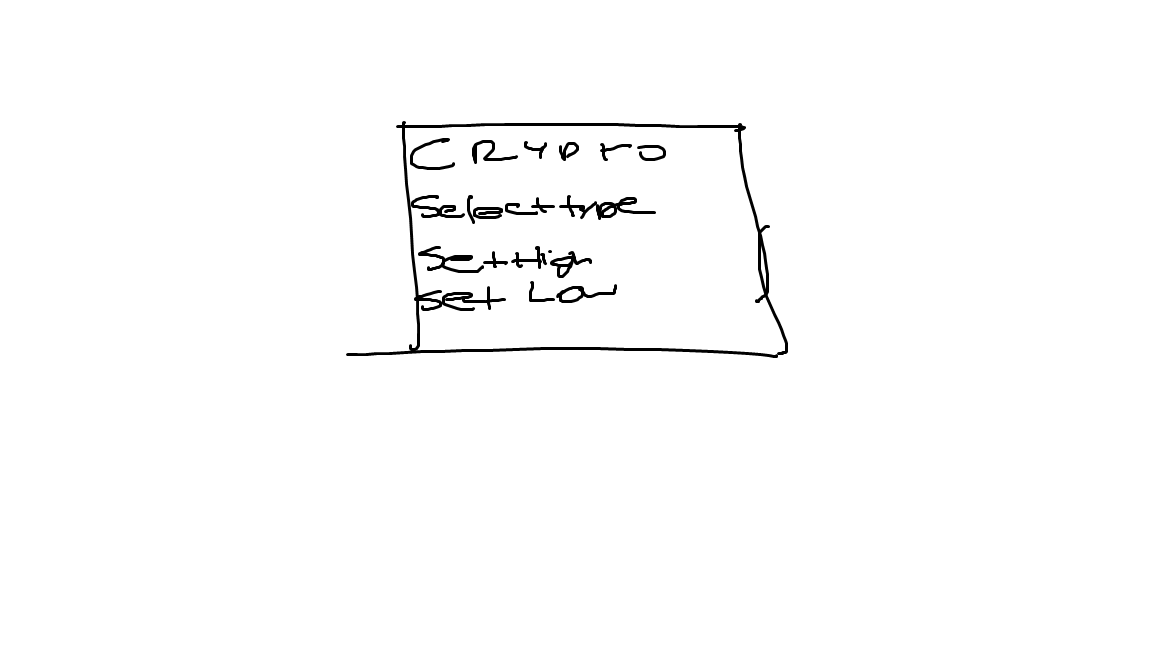 CRYPTO
Select type
Set High
Set Low